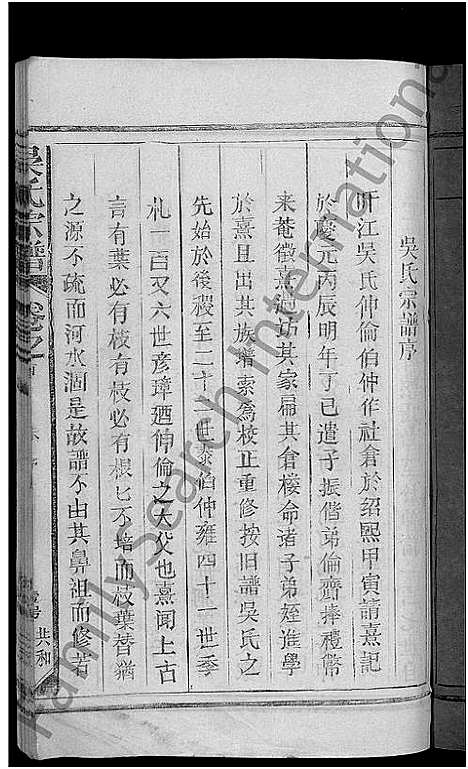 吳氏宗譜序
旴江吳氏伸倫伯仲作社倉於紹熙甲寅請熹記
於慶元丙辰明年丁巳遣子振偕弟倫齊捧禮幣
來菴徵熹過訪其家扁其倉樓命諸子弟姪進學
於熹且出其族譜索為校正重修按旧譜吳氏之
先始於後稷至二十一世泰伯仲雍四十一世季
札一百又六世彥璋廼伸倫之大父也熹聞上古
言有葉必有枝有枝必有根匕不培而枝葉替猶
之源不疏而河水涸是故譜不由其鼻祖而修者
吳氏宗譜 卷之首
共和
FamilySearch International